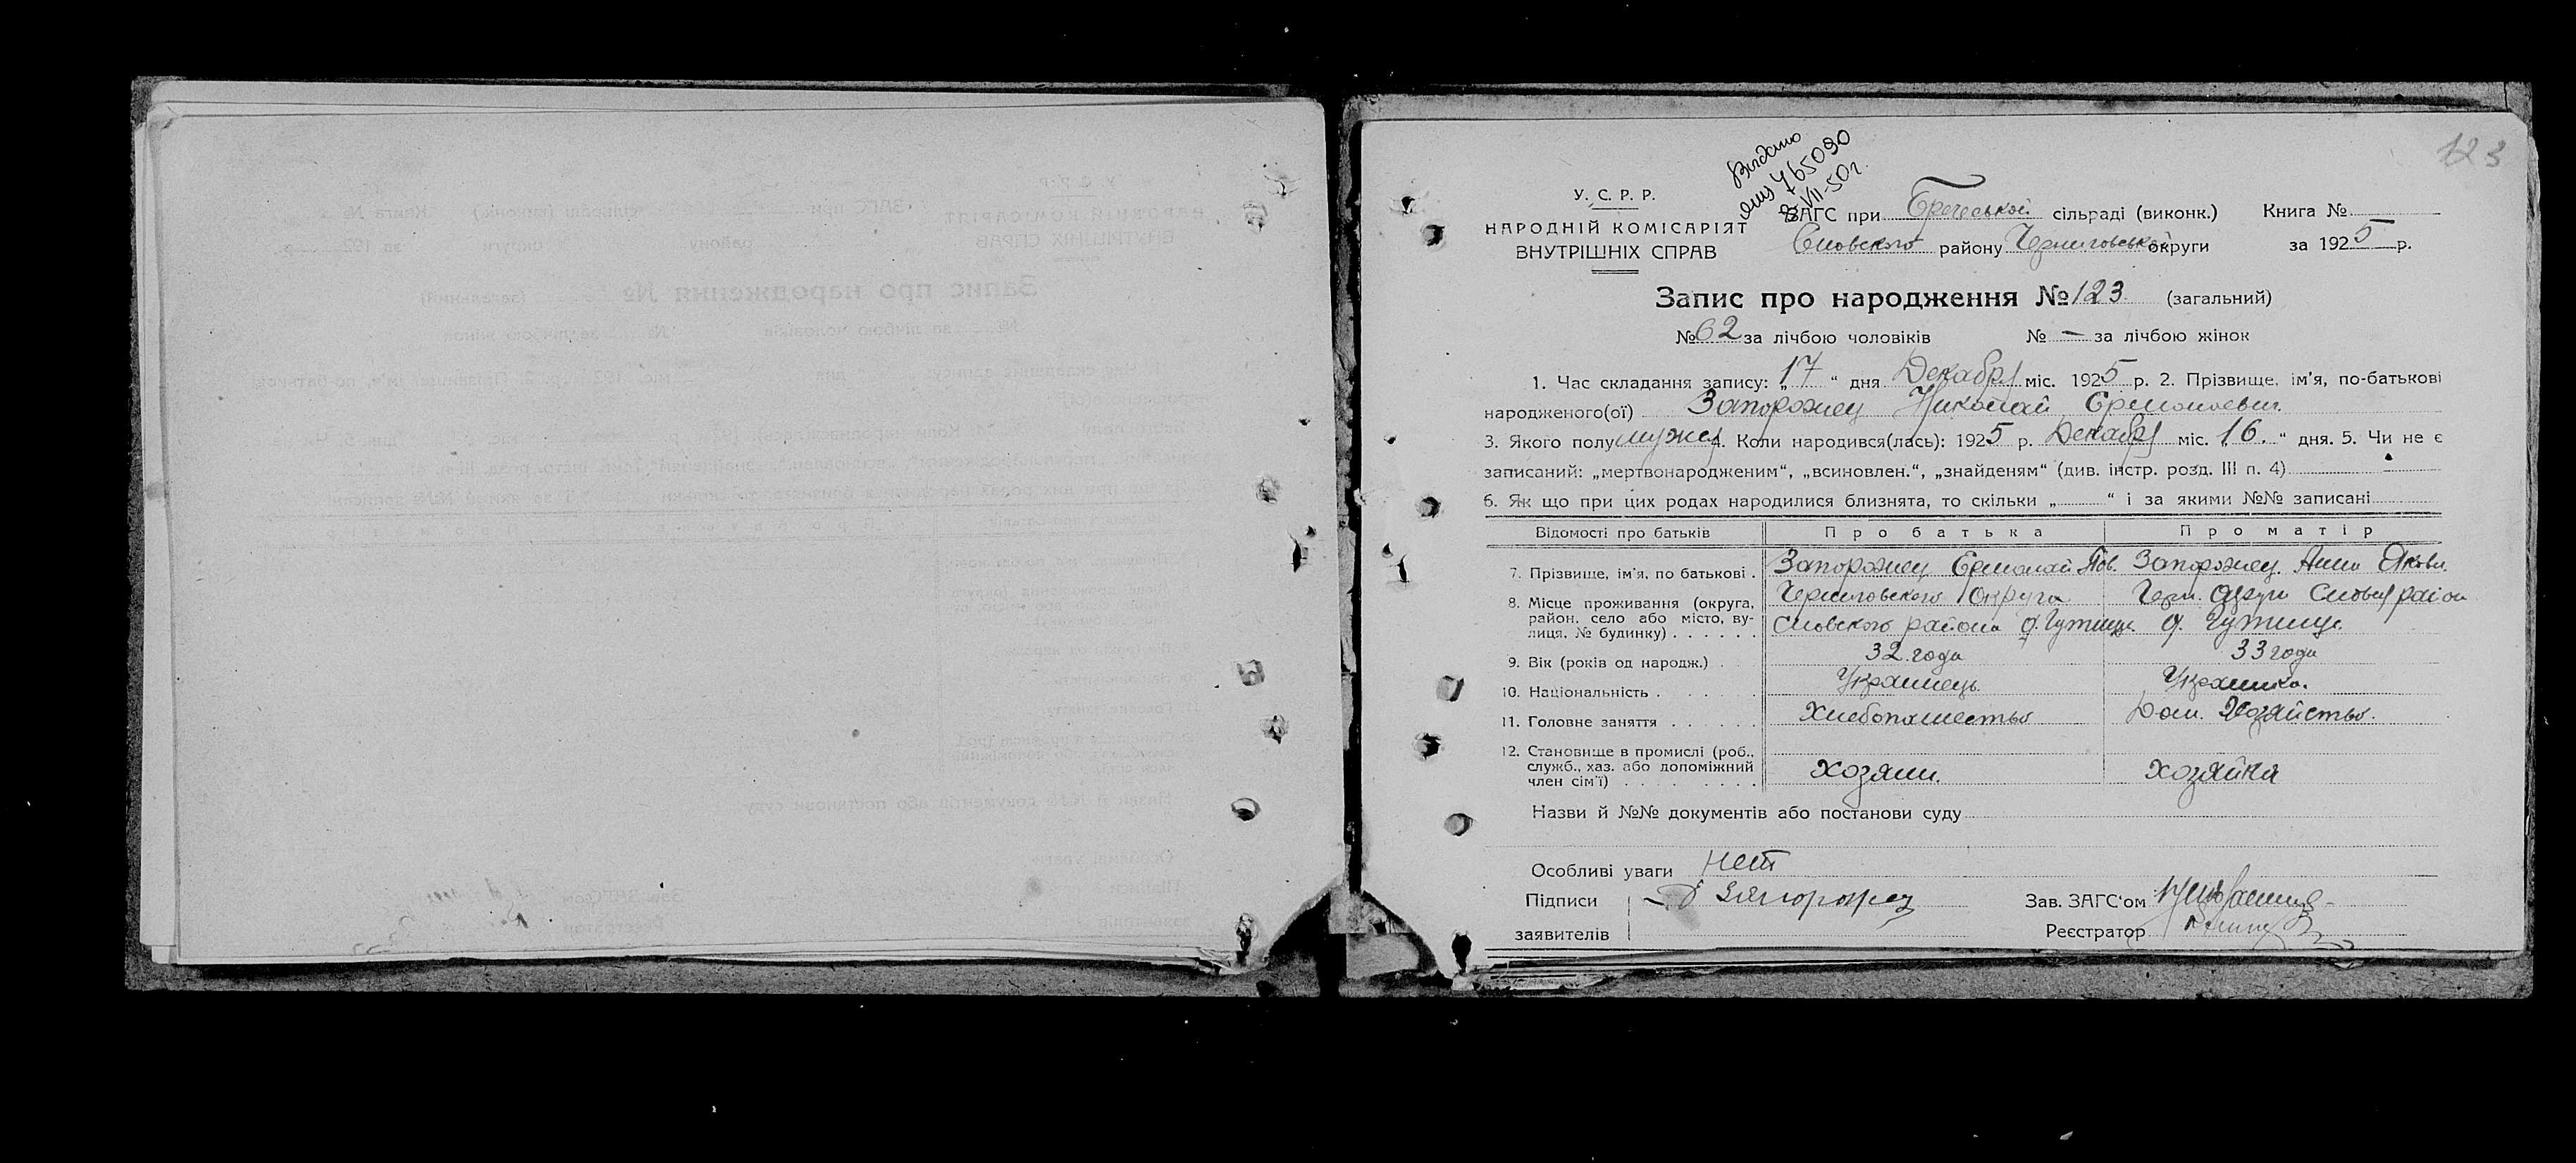 123
Видано
яиз 465090
8-VII-50г.
У. С. Р. Р.
НАРОДНІЙ КОМІСАРІЯТ
ВНУТРІШНІХ СПРАВ
ЗАГС при Бречської сільраді (виконк.) Книга №
Сновского району Черниговської округи за 1925 р.
Запис про народження № 123 (загальний)
№ 62 за лічбою чоловіків № — за лічбою жінок
1. Час складання запису: „17“ дня Декабря міс. 1925 р. 2. Прізвище, ім'я, по-батькові
народженого(ої) Запорожец Николай Ермолаевич.
3. Якого полу мужск. 4. Коли народився(лась): 1925 р. Декабря міс. „16.“ дня. 5. Чи не є
записаний: „мертвонародженим“, „всиновлен.“, „знайденям“ (див. інстр. розд. III п. 4)
6. Як що при цих родах народилися близнята, то скільки „ “ і за якими №№ записані
Відомості про батьків Про батька Про матір
7. Прізвище, ім'я, по батькові . Запорожец Ермолай Пав. Запорожец Анна Яковл.
8. Місце проживання (округа, район, село або місто, вулиця, № будинку) . . . . . . Черниговского Округа Черн. Округи Сновск район
Сновского района д. Гутище д. Гутище.
9. Вік (років од народж.) . 32 года 33 года
10. Національність . . . . . . Украинець Украинка.
11. Головне заняття . . . . . . Хлебопашество Дом. Хозяйство.
12. Становище в промислі (роб., служб., хаз. або допоміжний член сім'ї) . . . . . . . . Хозяин. Хозяйка
Назви й №№ документів або постанови суду
Особливі уваги Нет
Підписи Запорожец Зав. ЗАГС'ом
заявителів Реєстратор